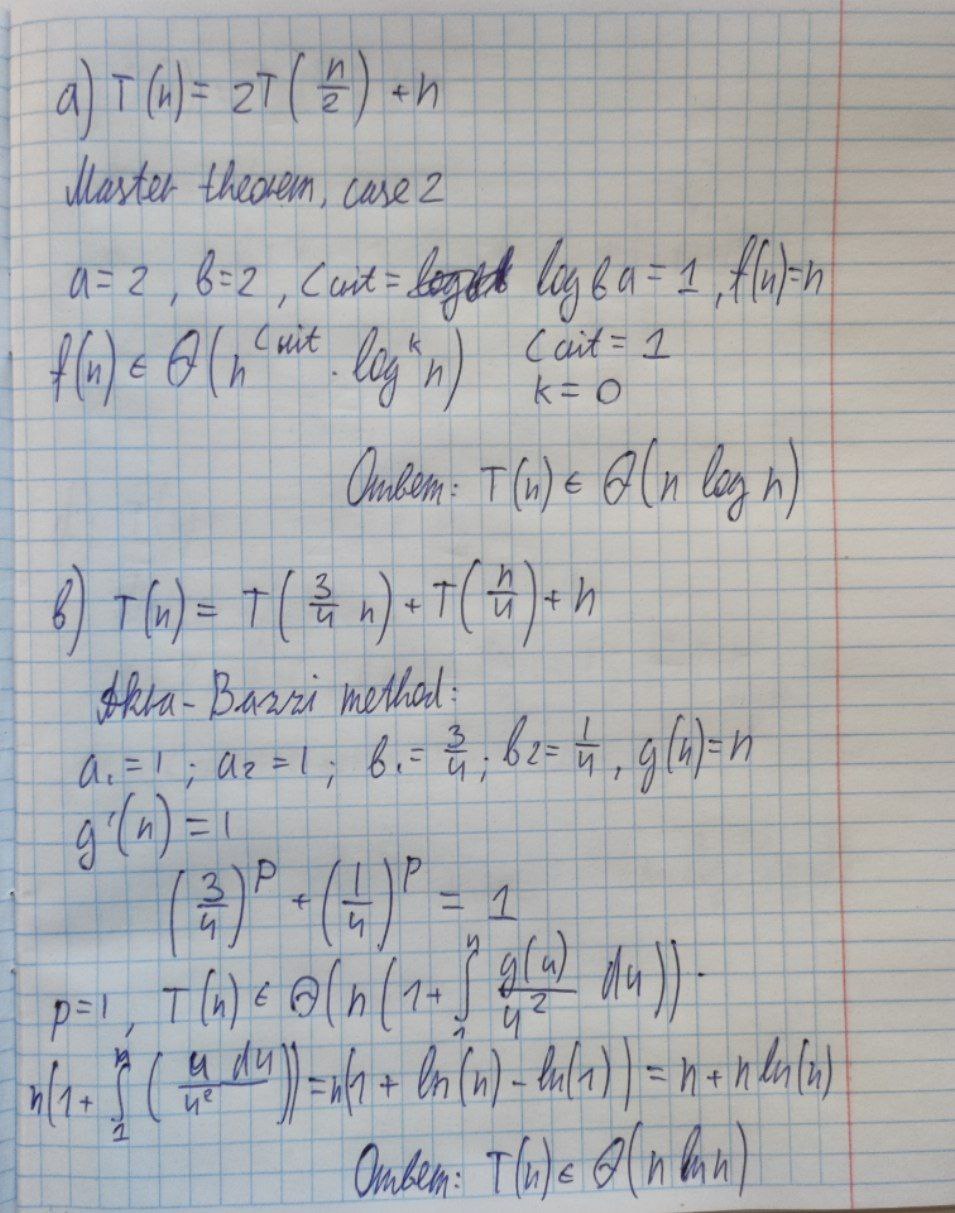 a) T(n) = 2T(n/2) + n
Master theorem, case 2
a = 2, b = 2, Ccrit = log b a = 1, f(n) = n
f(n) ∈ Θ(n^Ccrit · log^k n) Ccrit = 1
k = 0
Ответ: T(n) ∈ Θ(n log n)
в) T(n) = T(3/4 n) + T(n/4) + n
Akra-Bazzi method:
a₁ = 1; a₂ = 1; b₁ = 3/4; b₂ = 1/4, g(n) = n
g'(n) = 1
(3/4)^p + (1/4)^p = 1
p = 1, T(n) ∈ Θ(n(1 + ∫₁ⁿ g(u)/u² du)).
n(1 + ∫₁ⁿ (u du/u²)) = n(1 + ln(n) - ln(1)) = n + n ln(n)
Ответ: T(n) ∈ Θ(n ln n)